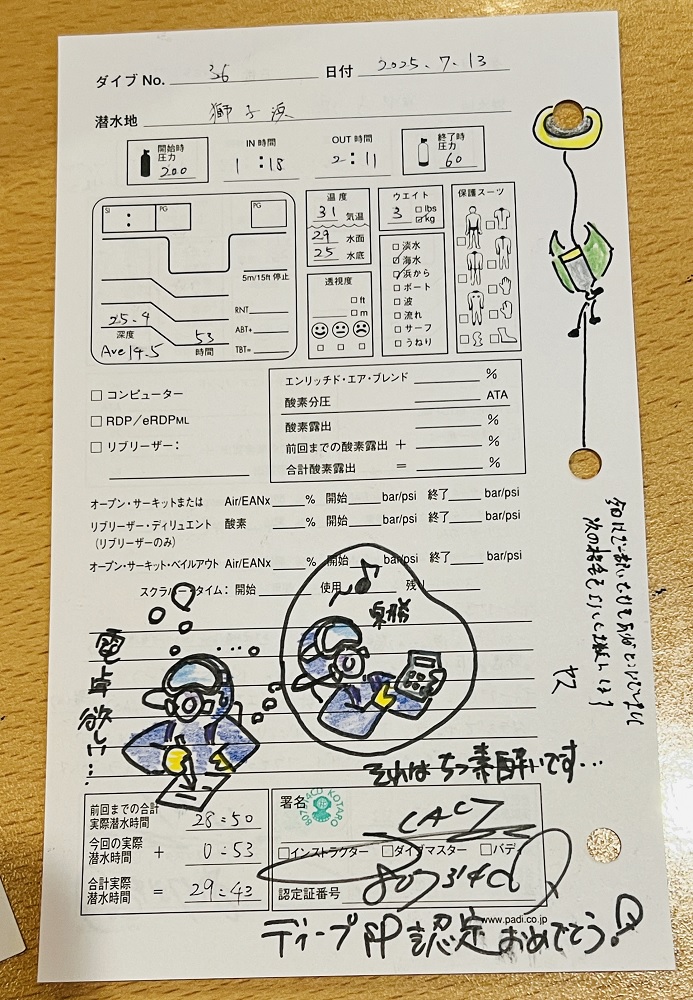 ダイブ No. 36 日付 2025.7.13
潜水地 獅子浜
開始時圧力 200 IN 時間 1:18 OUT 時間 2:11 終了時圧力 60
SI : PG PG
5m/15ft 停止
25.4
深度
Ave 14.5
53
時間
RNT
ABT+
TBT=
温度
31 気温
29 水面
25 水底
透視度
ft
m
ウエイト
3 lbs
kg
淡水
海水
浜から
ボート
波
流れ
サーフ
うねり
保護スーツ
コンピューター
RDP/eRDPML
リブリーザー：
エンリッチド・エア・ブレンド %
酸素分圧 ATA
酸素露出 %
前回までの酸素露出 + %
合計酸素露出 = %
オープン・サーキットまたは Air/EANx % 開始 bar/psi 終了 bar/psi
リブリーザー・ディリュエント 酸素 % 開始 bar/psi 終了 bar/psi
(リブリーザーのみ)
オープン・サーキット・ベイルアウト Air/EANx % 開始 bar/psi 終了 bar/psi
スクラバー・タイム：開始 使用 残り
電卓欲しい…
卓勝
それはちっ素酔いです…
ヤス
前回までの合計実際潜水時間 28:50
今回の実際潜水時間 + 0:53
合計実際潜水時間 = 29:43
署名
KOTARO
インストラクター ダイブマスター バディ
認定証番号
www.padi.co.jp
ディープSP認定おめでとう!